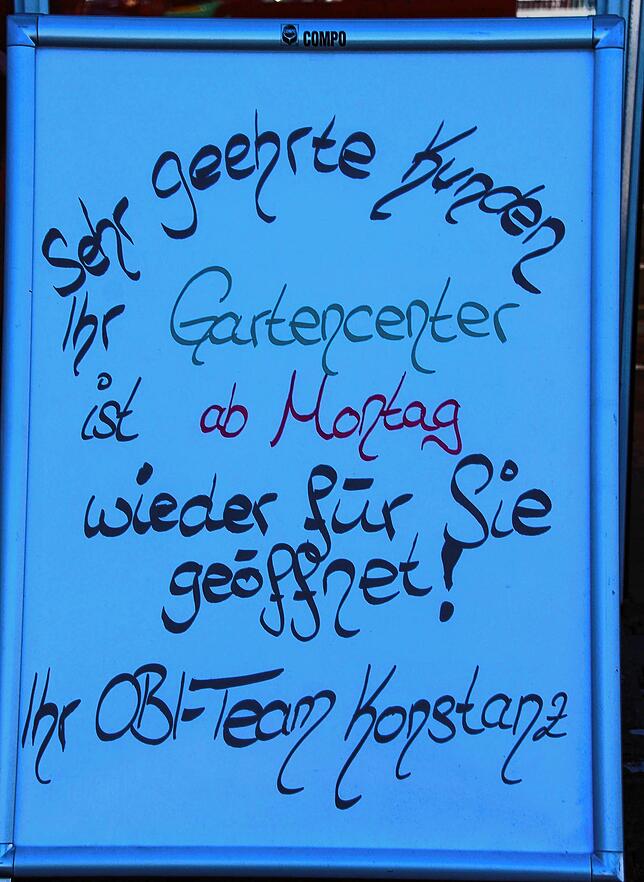 COMPO
Sehr geehrte Kunden
Ihr Gartencenter
ist ab Montag
wieder für Sie
geöffnet!
Ihr OBI-Team Konstanz